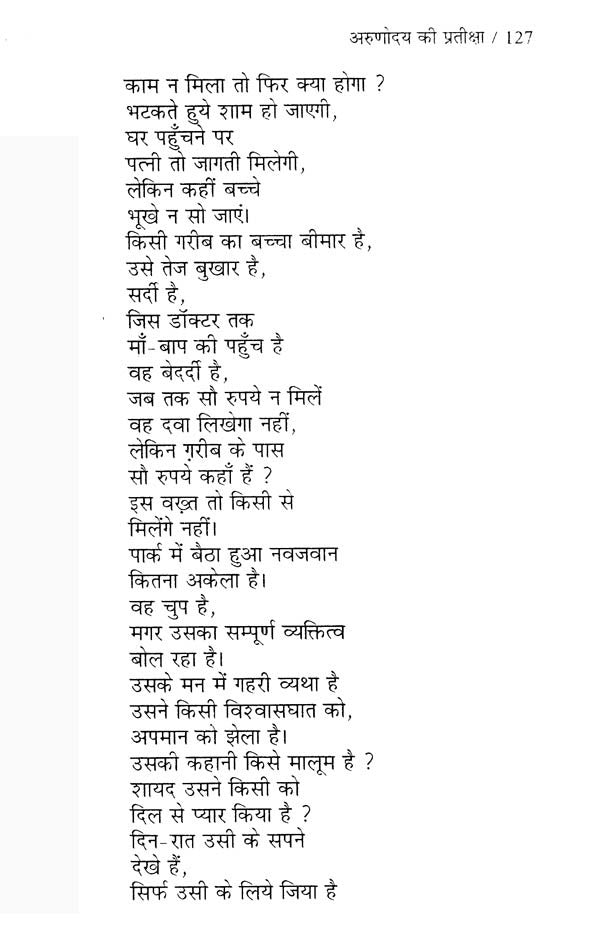 अरुणोदय की प्रतीक्षा / 127
काम न मिला तो फिर क्या होगा ?
भटकते हुये शाम हो जाएगी,
घर पहुँचने पर
पत्नी तो जागती मिलेगी,
लेकिन कहीं बच्चे
भूखे न सो जाएं।
किसी गरीब का बच्चा बीमार है,
उसे तेज बुखार है,
सर्दी है,
जिस डॉक्टर तक
माँ-बाप की पहुँच है
वह बेदर्दी है,
जब तक सौ रुपये न मिलें
वह दवा लिखेगा नहीं,
लेकिन ग़रीब के पास
सौ रुपये कहाँ हैं ?
इस वख़्त तो किसी से
मिलेंगे नहीं।
पार्क में बैठा हुआ नवजवान
कितना अकेला है।
वह चुप है,
मगर उसका सम्पूर्ण व्यक्तित्व
बोल रहा है।
उसके मन में गहरी व्यथा है
उसने किसी विश्वासघात को,
अपमान को झेला है।
उसकी कहानी किसे मालूम है ?
शायद उसने किसी को
दिल से प्यार किया है ?
दिन-रात उसी के सपने
देखे हैं,
सिर्फ उसी के लिये जिया है